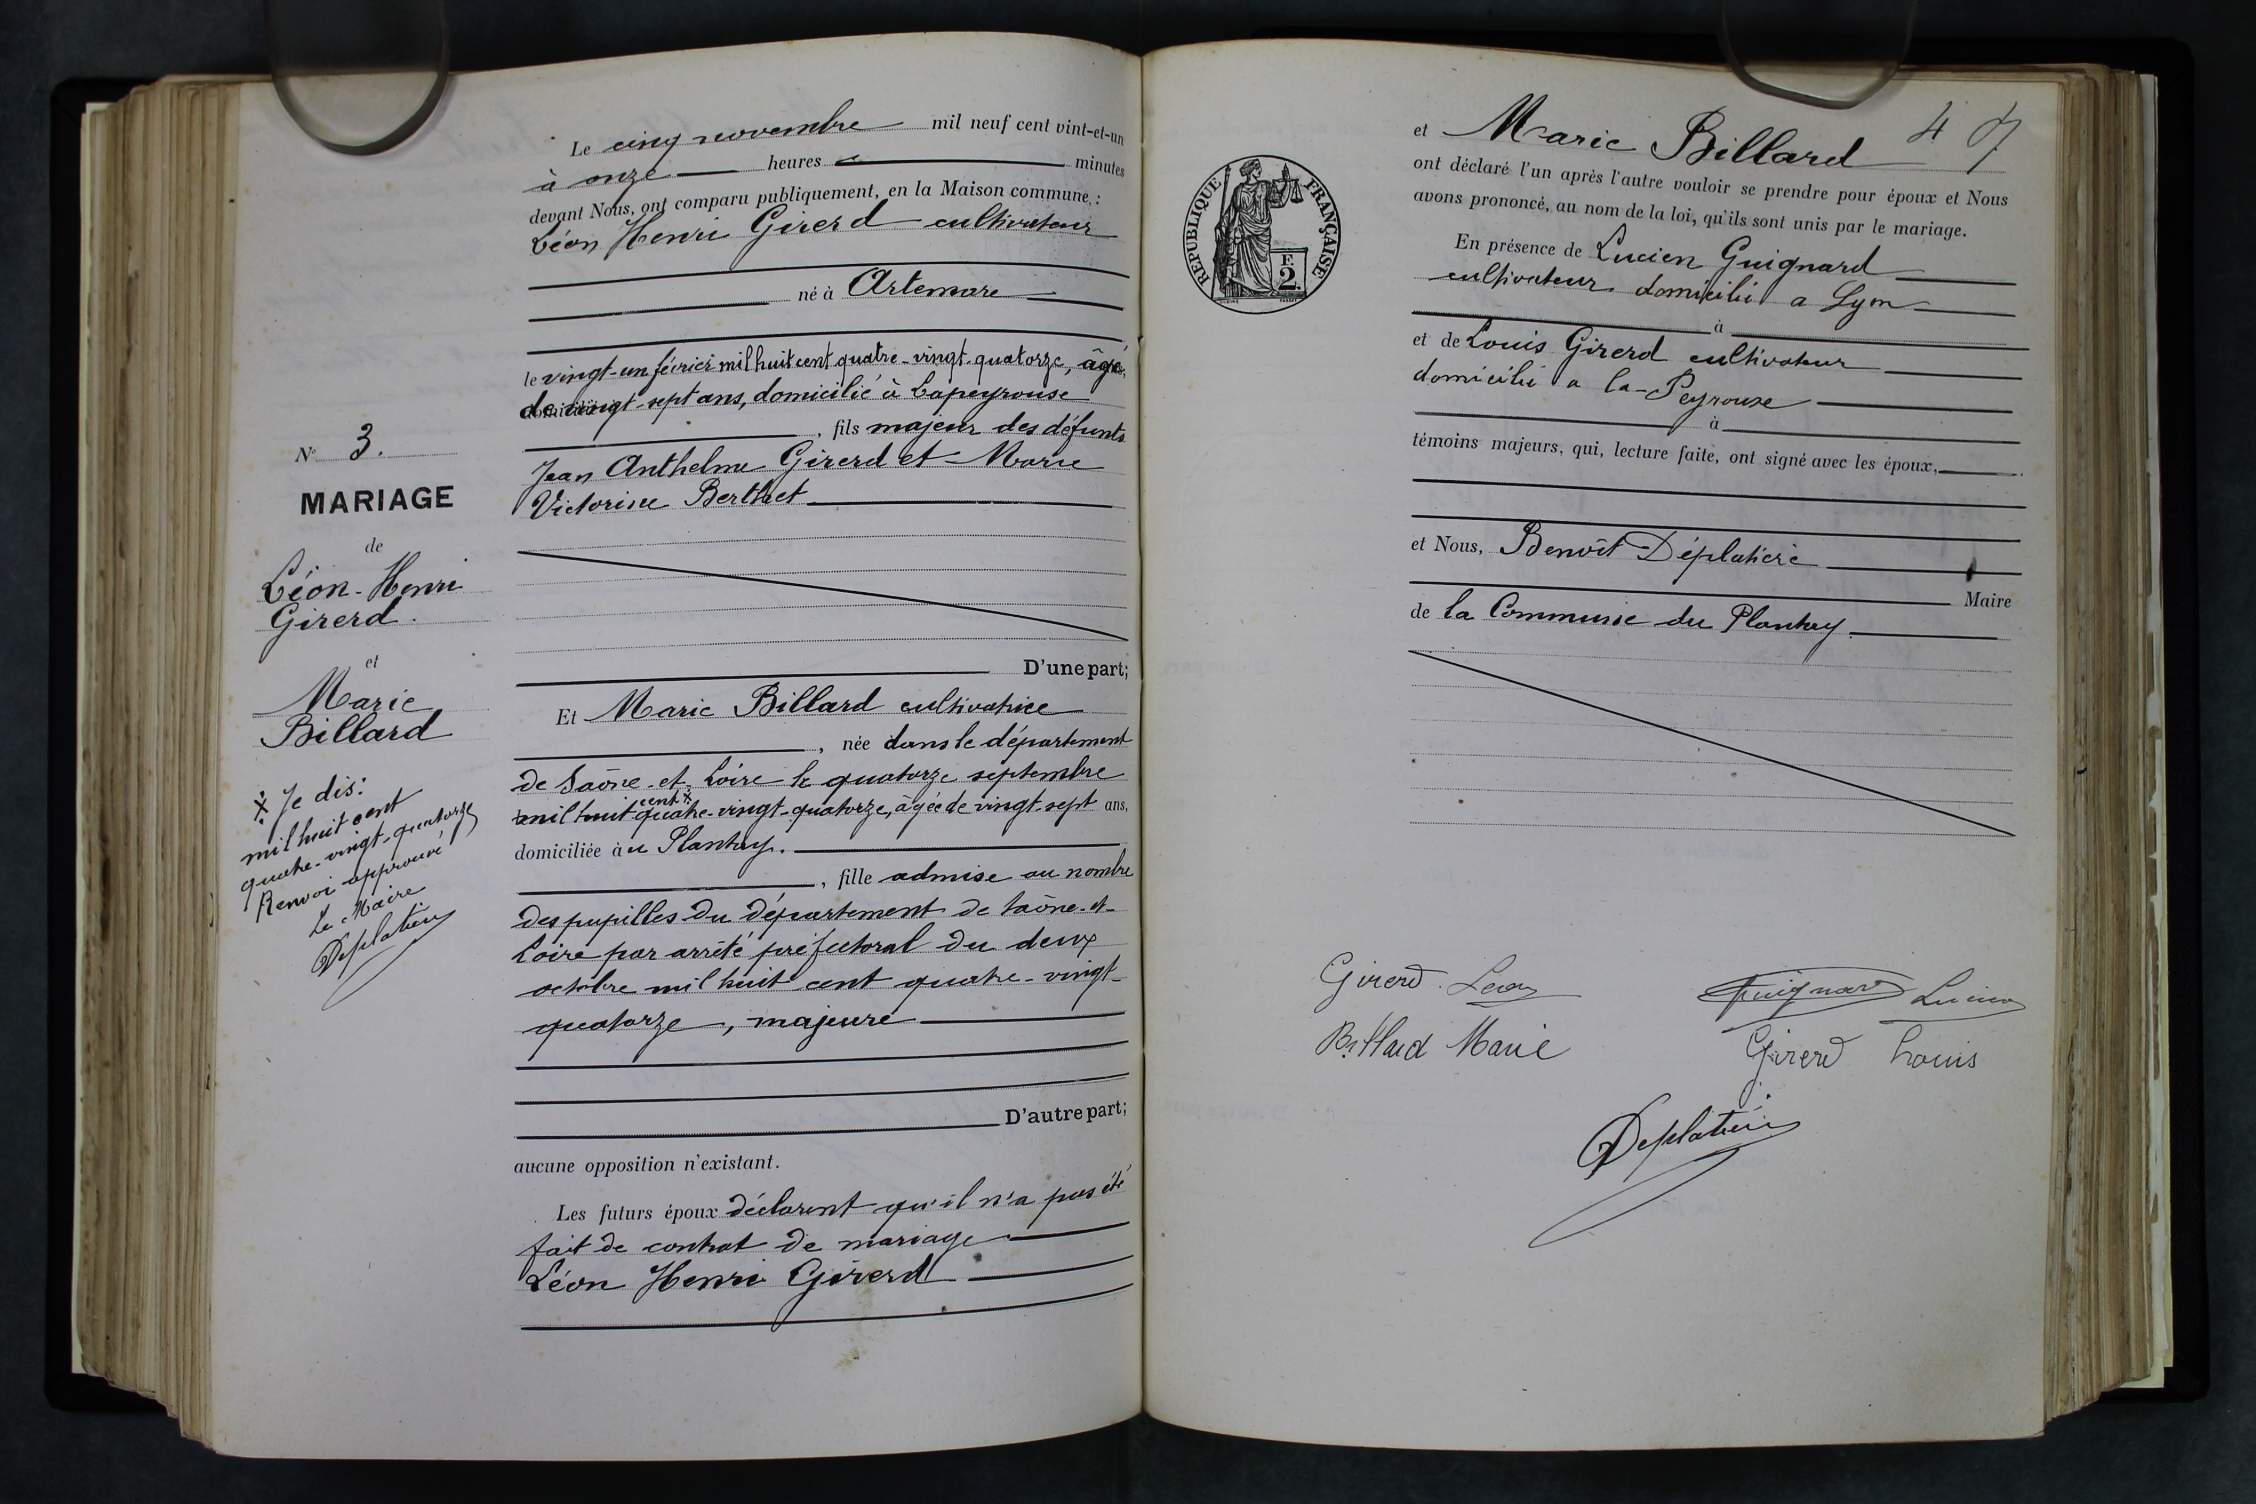 Le cinq novembre mil neuf cent vint-et-un
à onze heures minutes
devant Nous, ont comparu publiquement, en la Maison commune, :
Léon Henri Girerd cultivateur
né à Artemare
le vingt-un février mil huit cent quatre-vingt-quatorze, âgé
de vingt-sept ans, domicilié à Lapeyrouse
, fils majeur des défunts
Jean Anthelme Girerd et Marie
Victorine Berthet
D'une part;
Et Marie Billard cultivatrice
, née dans le département
de Saône-et-Loire le quatorze septembre
mil huit cent quatre-vingt-quatorze, âgée de vingt-sept ans,
domiciliée au Plantay.
, fille admise au nombre
des pupilles du département de Saône-et-
Loire par arrêté préfectoral du deux
octobre mil huit cent quatre-vingt-
quatorze, majeure
D'autre part;
aucune opposition n'existant.
Les futurs époux déclarent qu'il n'a pas été
fait de contrat de mariage
Léon Henri Girerd
N° 3.
MARIAGE
de
Léon-Henri
Girerd.
et
Marie
Billard
Je dis:
mil huit cent
quatre-vingt-quatorze
Renvoi approuvé
Le Maire
Déplatière
47
et Marie Billard
ont déclaré l'un après l'autre vouloir se prendre pour époux et Nous
avons prononcé, au nom de la loi, qu'ils sont unis par le mariage.
RÉPUBLIQUE FRANÇAISE
F.
2.
En présence de Lucien Guignard
cultivateur domicilié a Lyon
à
et de Louis Girerd cultivateur
domicilié a la-Peyrouse
à
témoins majeurs, qui, lecture faite, ont signé avec les époux,
et Nous, Benoît Déplatière
Maire
de la Commune du Plantay.
Girerd Leon
Guignard Lucien
Billard Marie
Girerd Louis
Déplatière